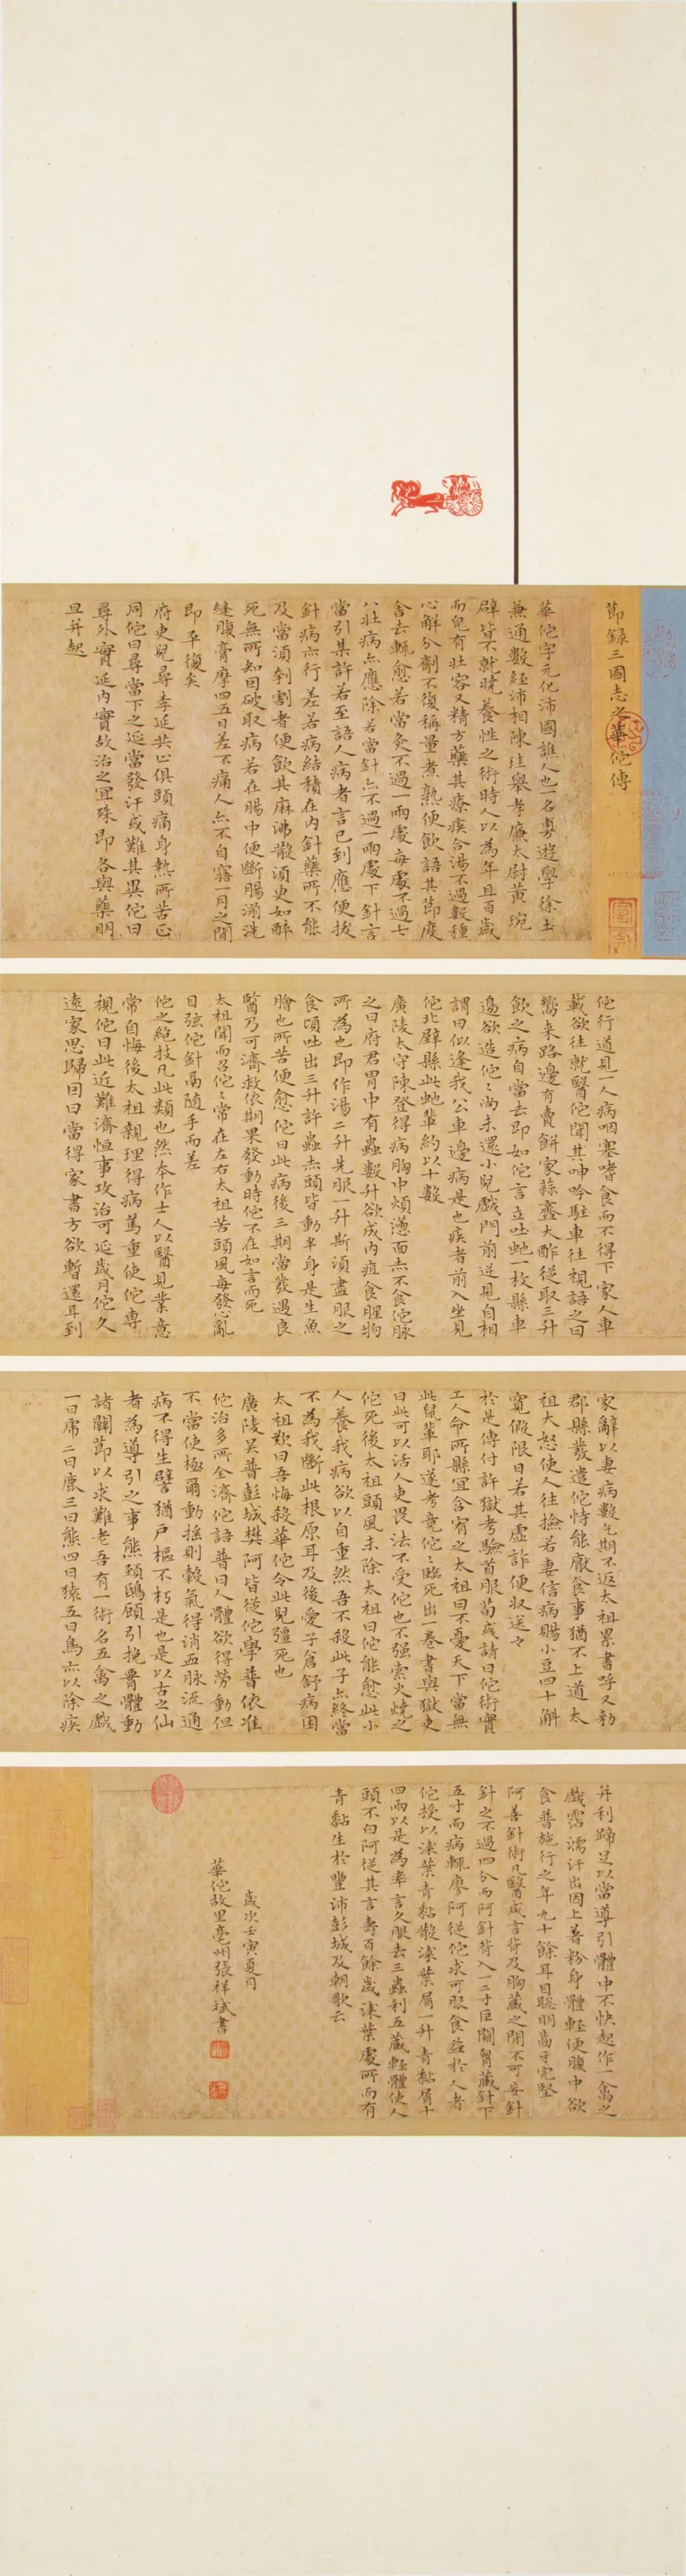 節錄三國志之華佗傳
華佗字元化沛國譙人也一名旉遊學徐土
兼通數經沛相陳珪舉孝廉太尉黃琬
辟皆不就曉養性之術時人以為年且百歲
而皃有壯容又精方藥其療疾合湯不過數種
心解分劑不復稱量煮熟便飲語其節度
舍去輒愈若當灸不過一兩處每處不過七
八壯病亦應除若當針亦不過一兩處下針言
當引某許若至語人病者言已到應便拔
針病亦行差若病結積在內針藥所不能
及當須刳割者便飲其麻沸散須臾如醉
死無所知因破取病若在腸中便斷腸湔洗
縫腹膏摩四五日差不痛人亦不自寤一月之間
即平復矣
府吏兒尋李延共止俱頭痛身熱所苦正
同佗曰尋當下之延當發汗或難其異佗曰
尋外實延內實故治之宜殊即各與藥明
旦并起
佗行道見一人病咽塞嗜食而不得下家人車
載欲往就醫佗聞其呻吟駐車往視語之曰
嚮来路邊有賣餅家蒜齏大酢從取三升
飲之病自當去即如佗言立吐虵一枚縣車
邊欲造佗佗尚未還小兒戲門前逆見自相
謂曰似逢我公車邊病是也疾者前入坐見
佗北壁縣此虵輩約以十數
廣陵太守陳登得病胸中煩懣面赤不食佗脉
之曰府君胃中有蟲數升欲成內疽食腥物
所為也即作湯二升先服一升斯須盡服之
食頃吐出三升許蟲赤頭皆動半身是生魚
膾也所苦便愈佗曰此病後三期當發遇良
醫乃可濟救依期果發動時佗不在如言而死
太祖聞而召佗佗常在左右太祖苦頭風每發心亂
目弦佗針鬲随手而差
佗之絕技凡此類也然本作士人以醫見業意
常自悔後太祖親理得病篤重使佗專
視佗曰此近難濟恒事攻治可延歲月佗久
遠家思歸因曰當得家書方欲暫還耳到
家辭以妻病數乞期不返太祖累書呼又勅
郡縣發遣佗恃能厭食事猶不上道太
祖大怒使人往撿若妻信病賜小豆四十斛
寬假限日若其虛詐便收送之
於是傳付許獄考驗首服荀彧請曰佗術實
工人命所縣宜含宥之太祖曰不憂天下當無
此鼠輩耶遂考竟佗佗臨死出一卷書與獄吏
曰此可以活人吏畏法不受佗也不强索火燒之
佗死後太祖頭風未除太祖曰佗能愈此小
人養我病欲以自重然吾不殺此子亦終當
不為我斷此根原耳及後愛子倉舒病困
太祖歎曰吾悔殺華佗令此兒彊死也
廣陵吴普彭城樊阿皆從佗學普依准
佗治多所全濟佗語普曰人體欲得勞動但
不當使極爾動摇則穀氣得消血脉流通
病不得生譬猶戶樞不朽是也是以古之仙
者為導引之事熊頸鴟顧引挽腰體動
諸關節以求難老吾有一術名五禽之戲
一曰虎二曰鹿三曰熊四曰猿五曰鳥亦以除疾
并利蹄足以當導引體中不快起作一禽之
戲霑濡汗出因上著粉身體輕便腹中欲
食普施行之年九十餘耳目聰明齒牙完堅
阿善針術凡醫咸言背及胸藏之間不可妄針
針之不過四分而阿針背入一二寸巨闕胷藏針下
五寸而病輒廖阿從佗求可服食益於人者
佗授以漆葉青黏散漆葉屑一升青黏屑十
四兩以是為率言久服去三蟲利五藏輕體使人
頭不白阿從其言壽百餘歲漆葉處所而有
青黏生於豐沛彭城及朝歌云
歲次壬寅夏月
華佗故里亳州張祥斌書